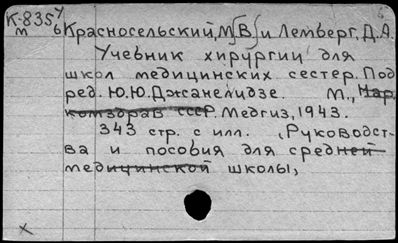 К-8357 Красносельский, М[В] и Лемберг, Д.А.
м б
Учебник хирургии для
школ медицинских сестер. Под
ред. Ю.Ю.Джанелидзе. М., Нар.
комздрав СССР. Медгиз, 1943.
343 стр. с илл. (Руководст-
ва и пособия для средней
медицинской школы)
x